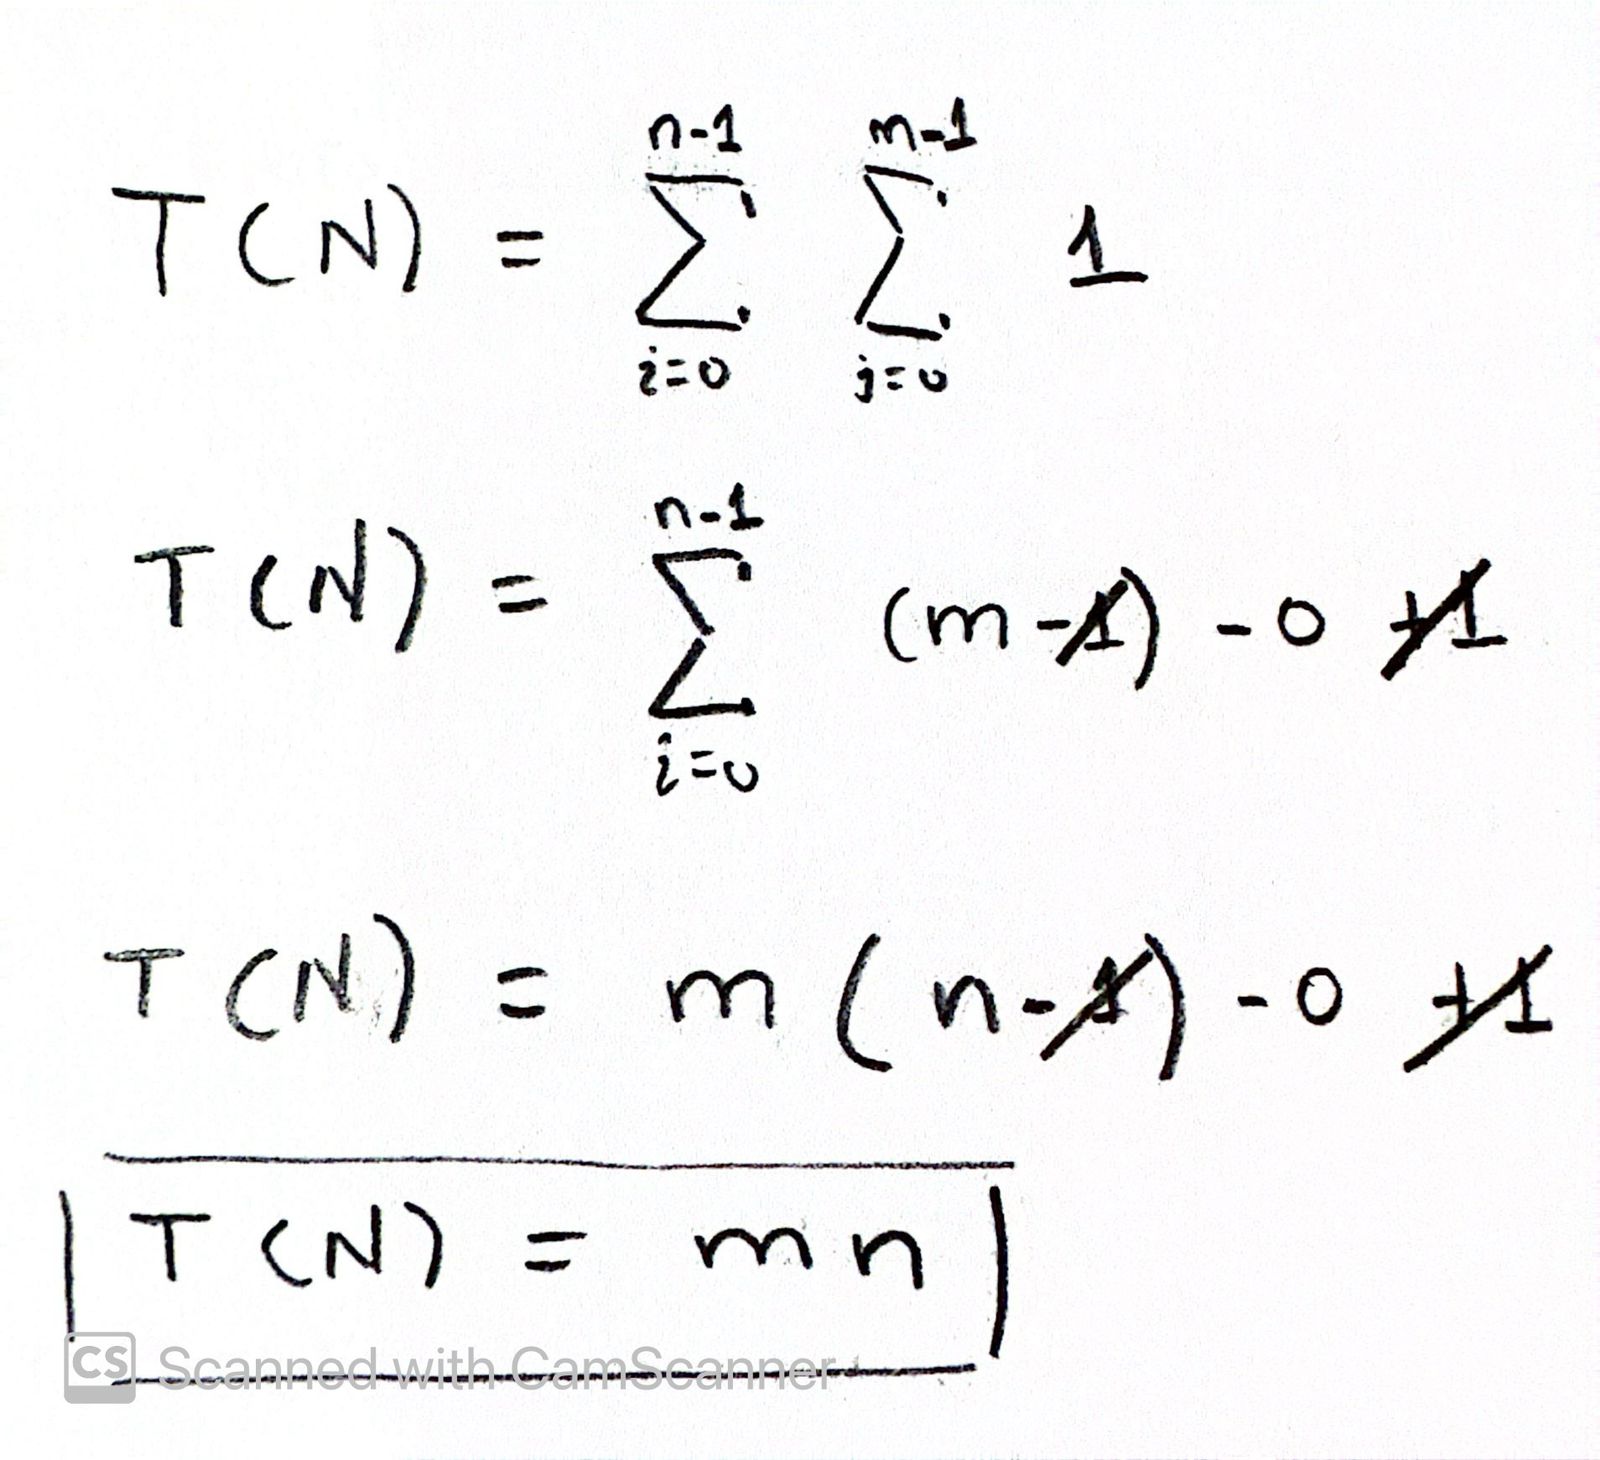 T(N) = \sum_{i=0}^{n-1} \sum_{j=0}^{m-1} 1
T(N) = \sum_{i=0}^{n-1} (m-1) - 0 +1
T(N) = m(n-1) - 0 +1
T(N) = mn
CS Scanned with CamScanner